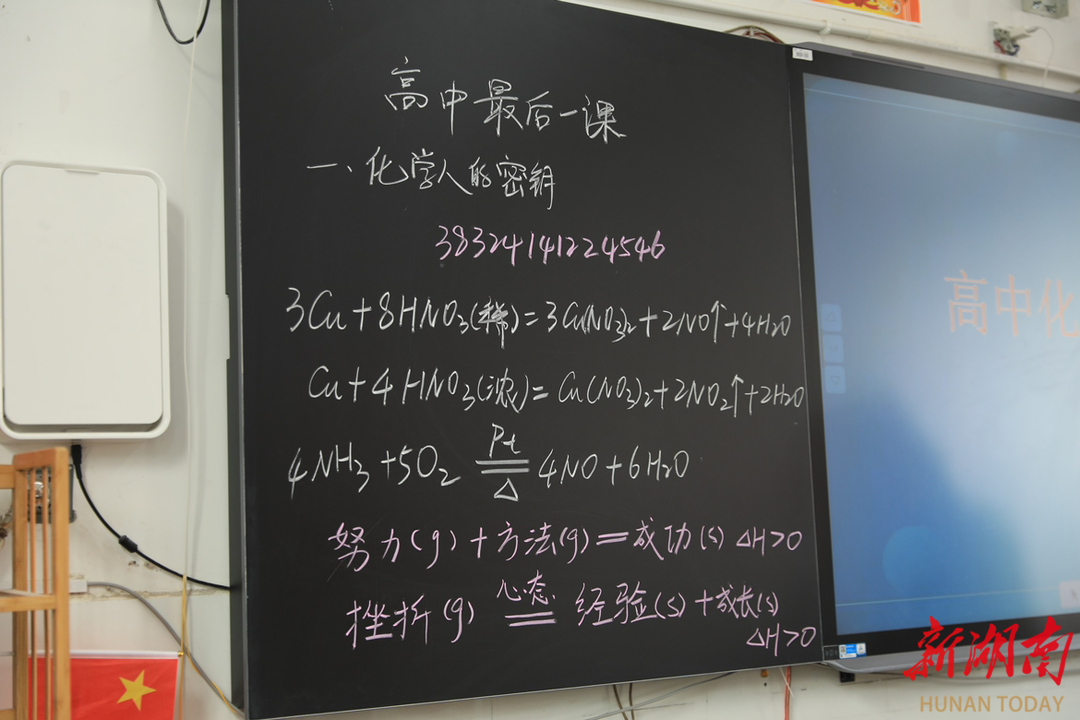 高中最后一课
一、化学人的密钥
38324141224546
3Cu+8HNO3(稀)=3Cu(NO3)2+2NO↑+4H2O
Cu+4HNO3(浓)=Cu(NO3)2+2NO2↑+2H2O
4NH3+5O2 Pt══△ 4NO+6H2O
努力(g)+方法(g)=成功(s) △H>0
挫折(g) 心态══ 经验(s)+成长(s)
△H>0
高中化
新湖南
HUNAN TODAY